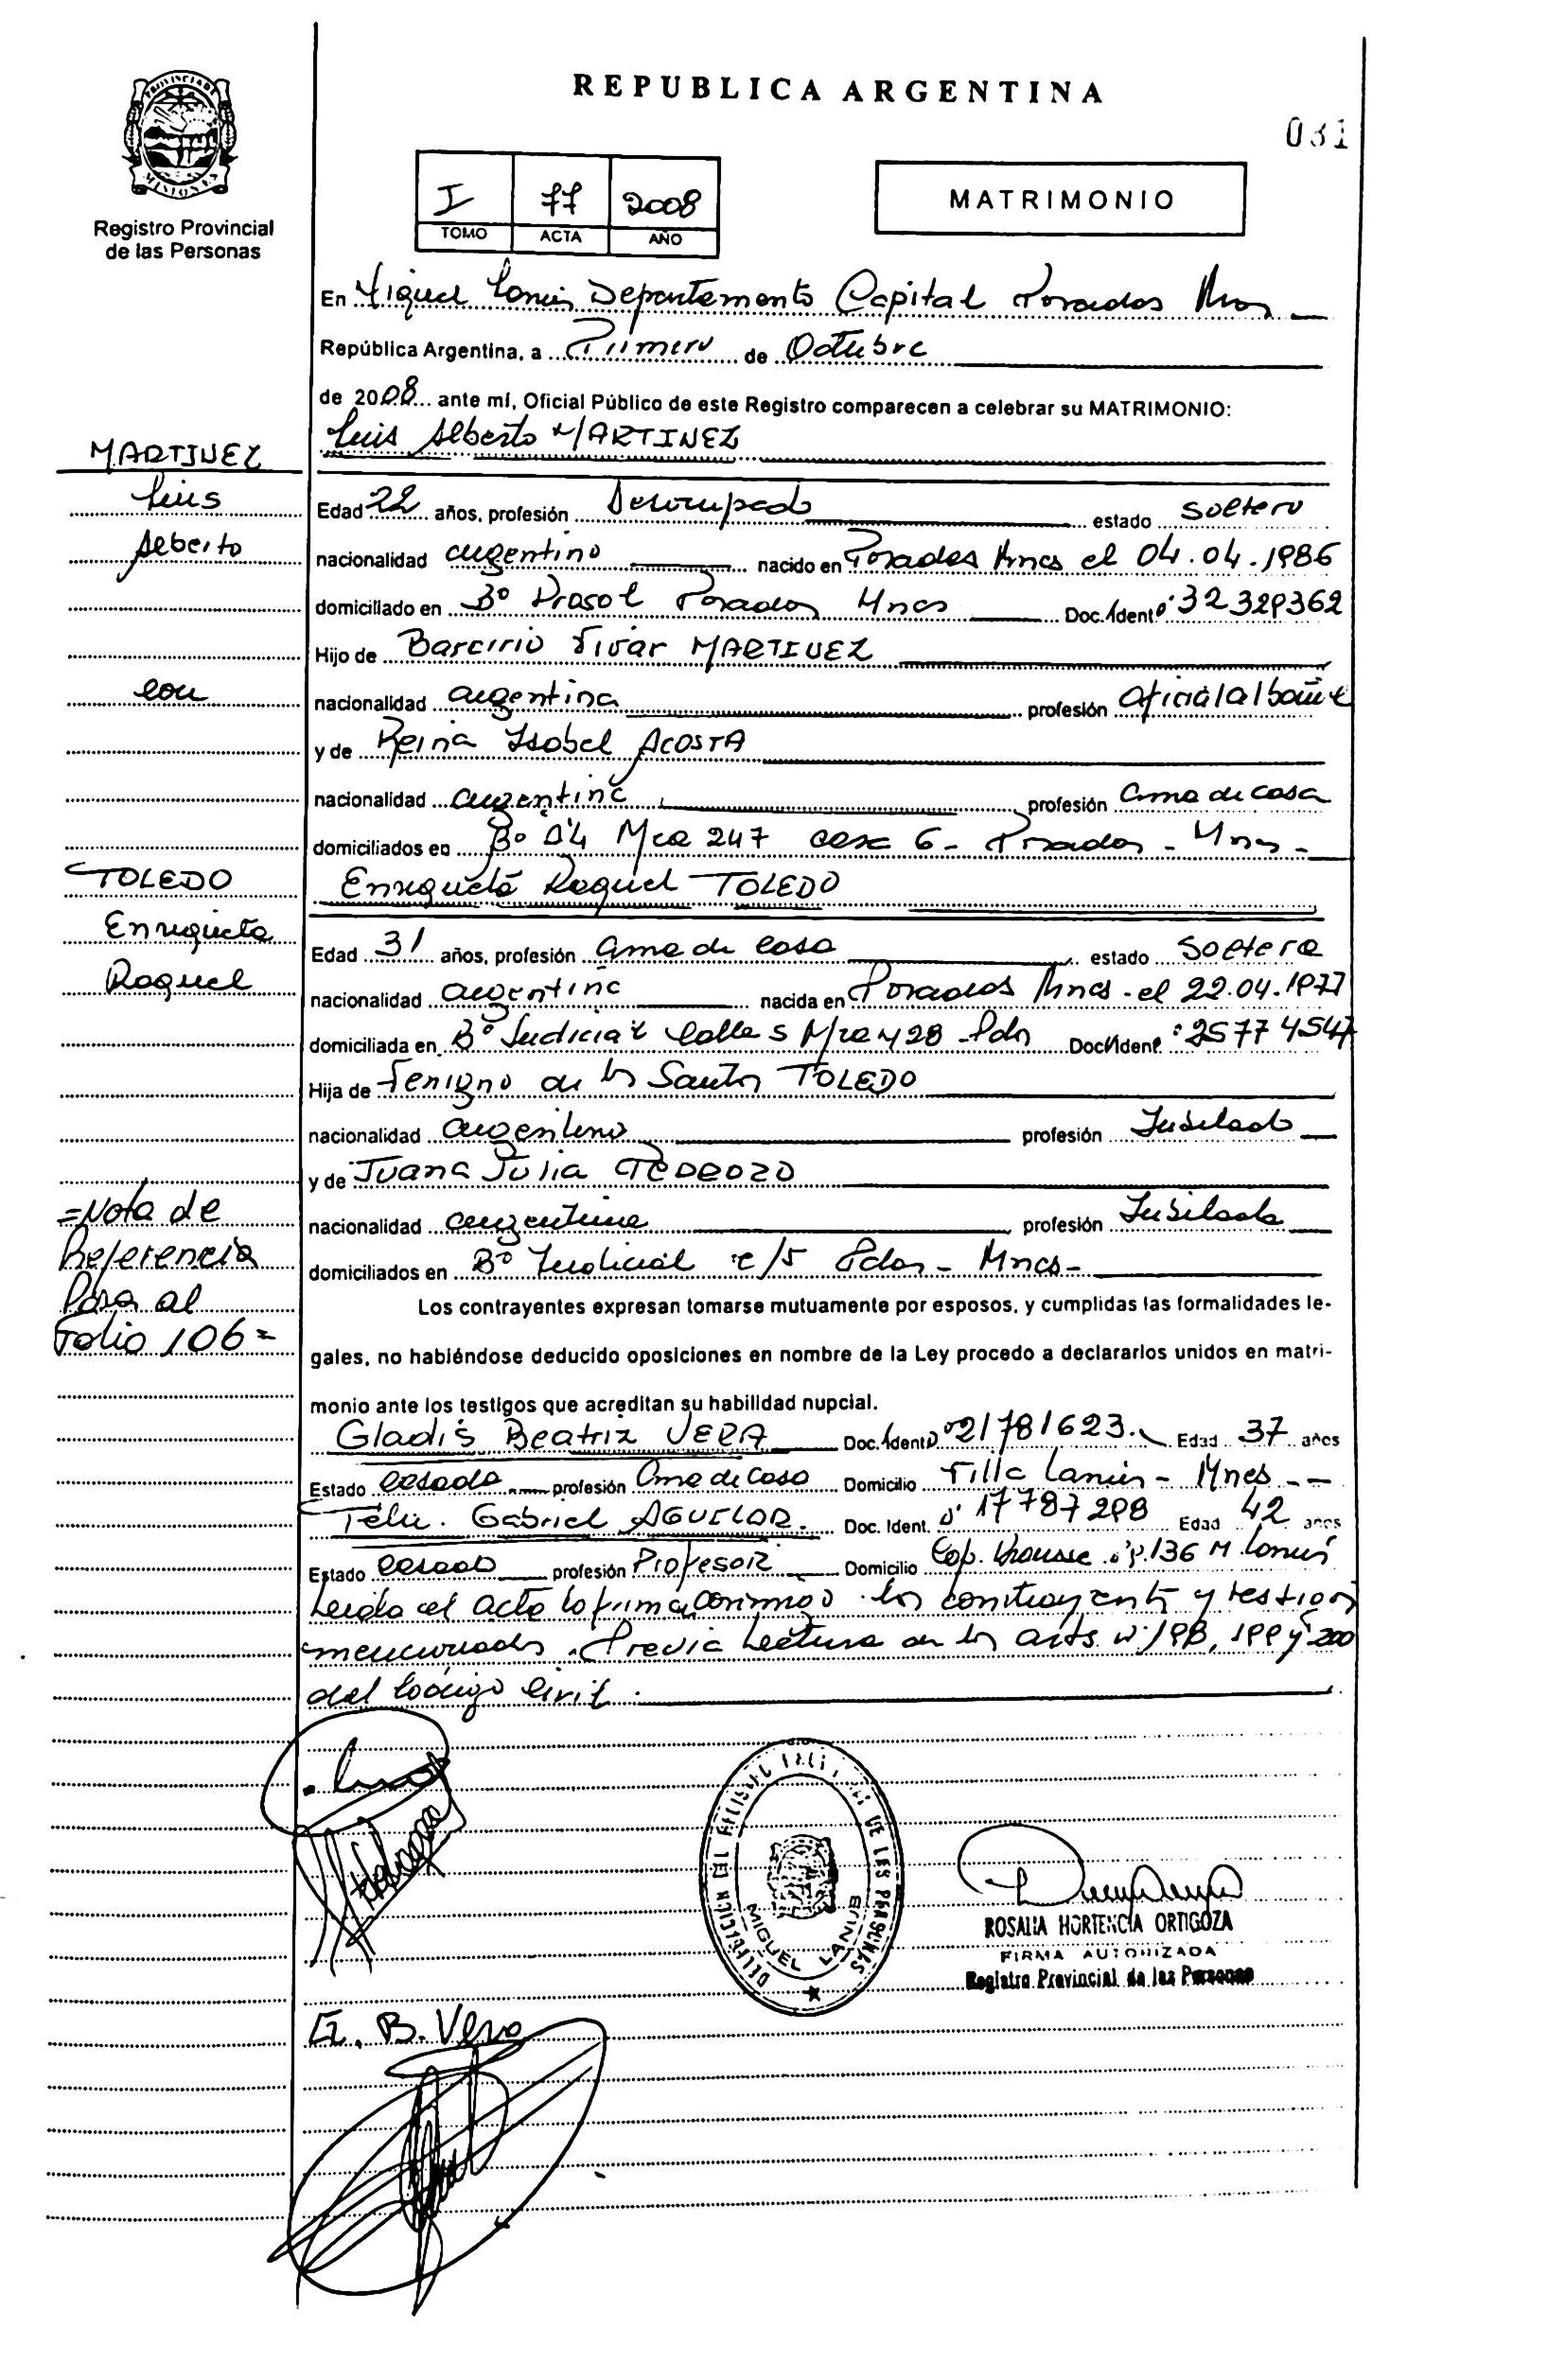 REPUBLICA ARGENTINA
031
PROVINCIA DE MISIONES
Registro Provincial
de las Personas
I 77 2008
TOMO ACTA AÑO
MATRIMONIO
En Miguel Lanús Departamento Capital Posadas Mnes
República Argentina, a Primero de Octubre
de 2008 ante mí, Oficial Público de este Registro comparecen a celebrar su MATRIMONIO:
Luis Alberto MARTINEZ
MARTINEZ
Luis
Alberto
con
TOLEDO
Enriqueta
Raquel
=Nota de
Referencia
Pasa al
Folio 106=
Edad 22 años, profesión Desocupado estado soltero
nacionalidad argentino nacido en Posadas Mnes el 04.04.1986
domiciliado en Bº Prosol Posadas Mnes Doc. Ident. 32329362
Hijo de MARTINEZ
nacionalidad argentina profesión oficial albañil
y de Reina Isabel ACOSTA
nacionalidad argentina profesión ama de casa
domiciliados en Bº A4 Mza 247 casa 6 - Posadas - Mnes -
Enriqueta Raquel TOLEDO
Edad 31 años, profesión ama de casa estado soltera
nacionalidad argentina nacida en Posadas Mnes - el 22.04.1977
domiciliada en Bº Judicial Calle 5 Mza 428 - Pdas Doc. Ident. 25774547
Hija de Benigno de los Santos TOLEDO
nacionalidad argentino profesión Jubilado
y de Juana Julia PEDROZO
nacionalidad argentina profesión Jubilada
domiciliados en Bº Judicial c/5 Pdas - Mnes -
Los contrayentes expresan tomarse mutuamente por esposos, y cumplidas las formalidades le-
gales, no habiéndose deducido oposiciones en nombre de la Ley procedo a declararlos unidos en matri-
monio ante los testigos que acreditan su habilidad nupcial.
Gladis Beatriz VERA Doc. Ident. 21781623. Edad 37 años
Estado casada profesión Ama de Casa Domicilio Villa Lanús - Mnes - -
Félix Gabriel AGUILAR. Doc. Ident. 17787298 Edad 42 años
Estado casado profesión Profesor Domicilio Cap. Krausse 136 M. Lanús
Leída el acta la firman conmigo los contrayentes y testigos
mencionados. Previa Lectura de los arts. Nº 198, 199 y 200
del Código Civil.
DELEGACION DEL REGISTRO PROVINCIAL DE LAS PERSONAS
MIGUEL LANUS
ROSALIA HORTENCIA ORTIGOZA
FIRMA AUTORIZADA
Registro Provincial de las Personas
G. B. Vera